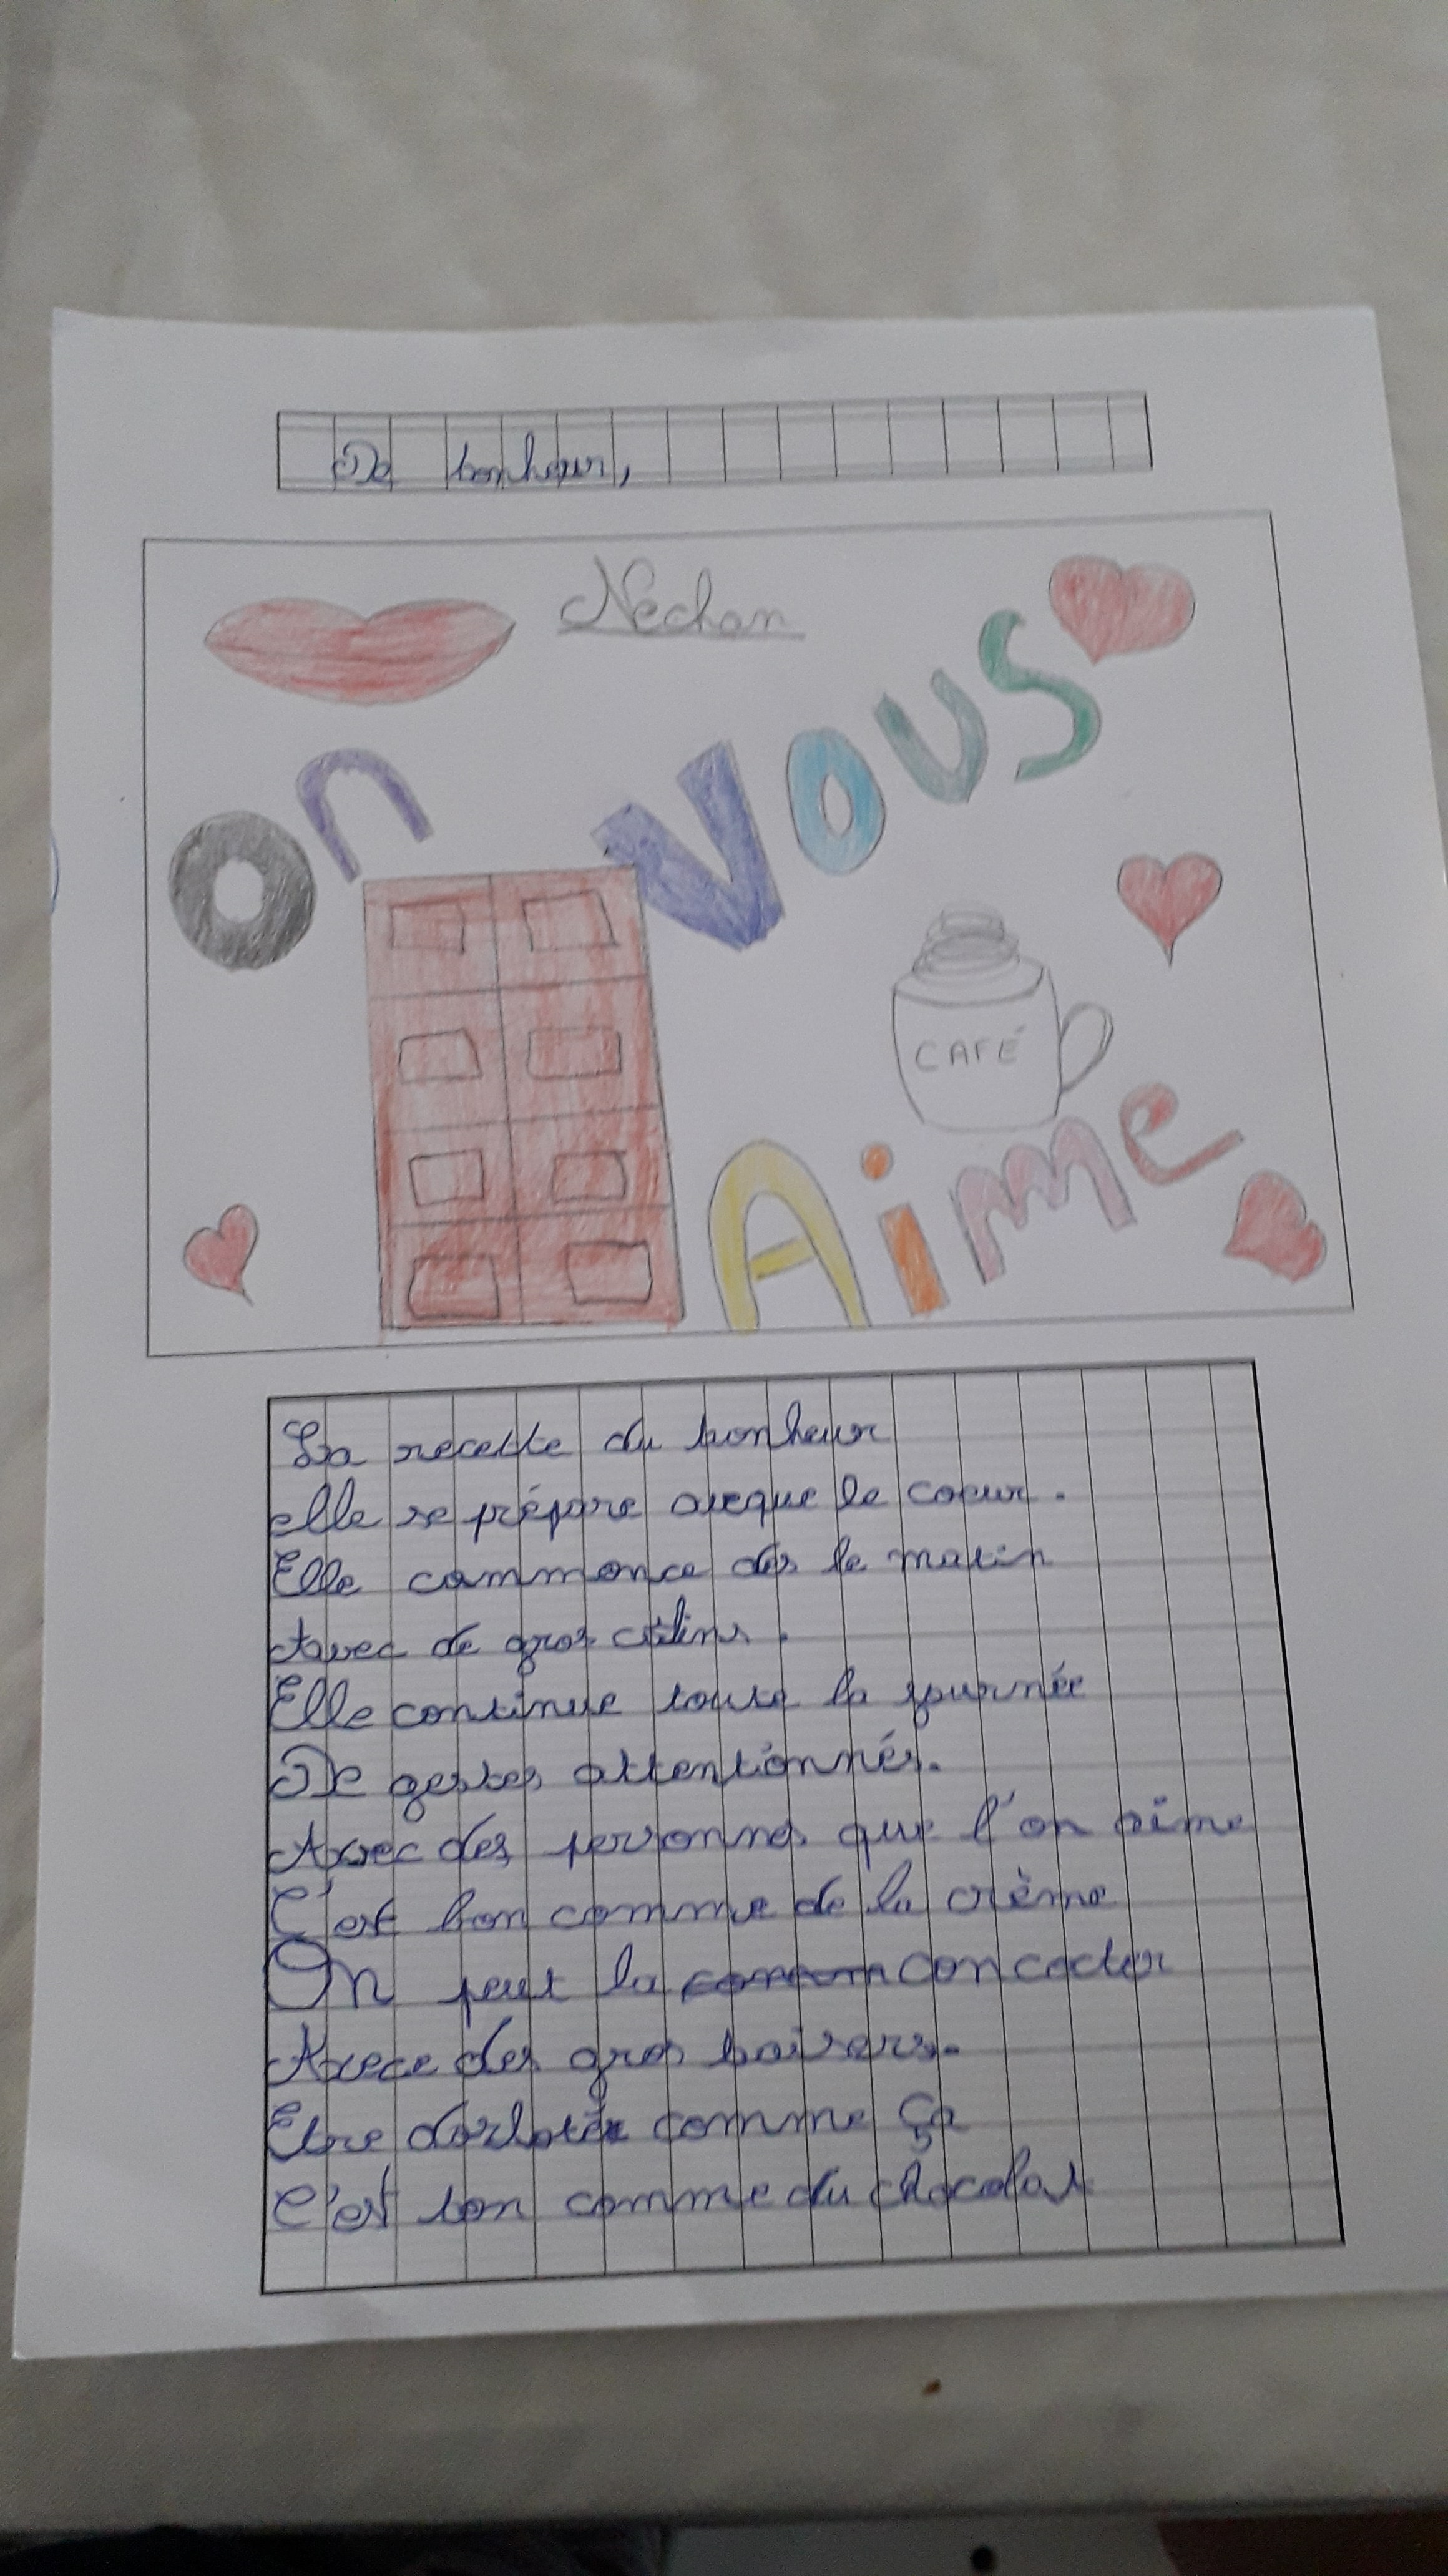 De bonheur,
Néchan
On vous
CAFÉ
Aime
La recette du bonheur
elle se prépare aveque le coeur.
Elle commence dès le matin
Avec de gros câlins.
Elle continue toute la journée
De gestes attentionnés.
Avec des personnes que l'on aime
C'est bon comme de la crème
On peut la concocter
Avece des gros baisers.
Etre dorloter comme ça
C'est bon comme du chocolat